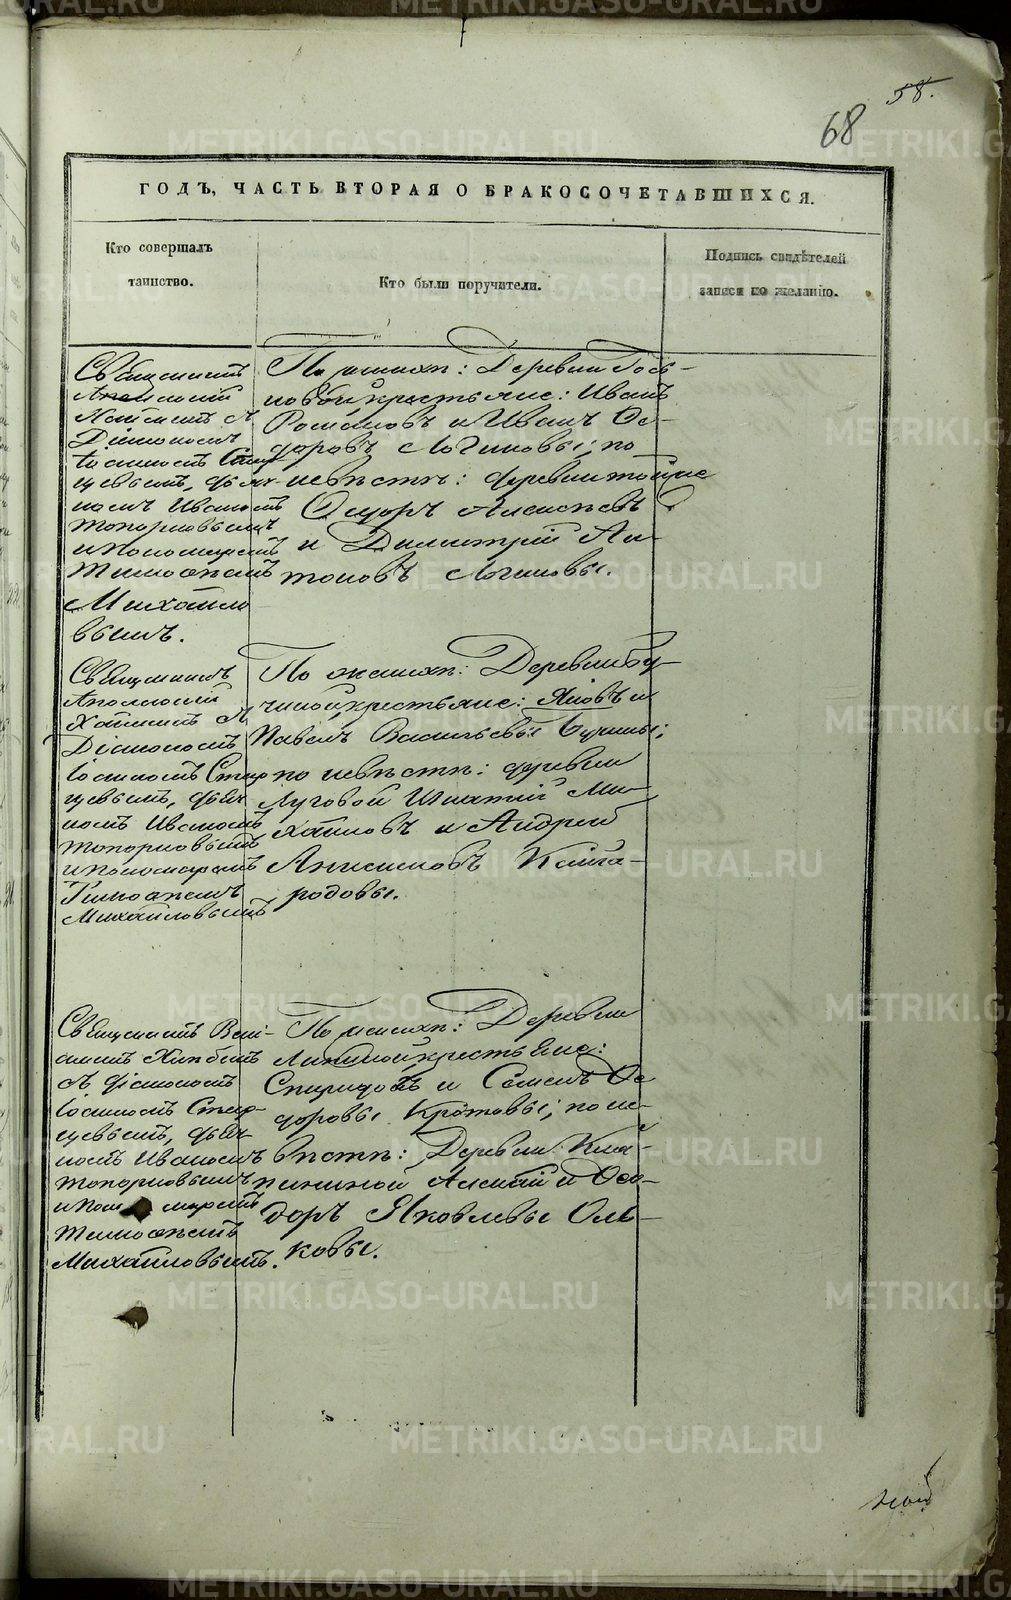 58.
68
ГОДЪ, ЧАСТЬ ВТОРАЯ О БРАКОСОЧЕТАВШИХСЯ.
Кто совершалъ
таинство.
Кто были поручители.
Подпись свидѣтелей
записи по желанію.
Священникъ
Діакономъ
Іоанномъ
номъ Иваномъ
Топорковымъ
и пономаремъ
Тимоѳеемъ
Михайло
вымъ.
По женихѣ: Деревни
крестьяне: Иванъ
Романовъ и Иванъ Ѳе-
доровъ Логиновы; по
невѣстѣ: деревни тойже
Ѳедоръ Алексѣевъ
и Димитрій Ан-
тоновъ Логиновы.
Священникъ
Аполлоній
Діакономъ
Іоанномъ
номъ Иваномъ
Топорковымъ
и пономаремъ
Тимоѳеемъ
Михайловымъ
По женихѣ: Деревни Бу-
чиной крестьяне: Яковъ и
Павелъ Васильевы Бучины;
по невѣстѣ: деревни
Луговой Игнатій Ми-
хайловъ и Андрей
Анисимовъ Кайга-
родовы.
Священникъ Вені-
аминъ
съ діакономъ
Іоанномъ
номъ Иваномъ
Топорковымъ
Тимоѳеемъ
Михайловымъ.
По женихѣ: Деревни
Липиной крестьяне:
Спиридонъ и Семенъ Ѳе
доровы Кротовы; по не-
вѣстѣ: Деревни
Алексѣй и Ѳео-
доръ Яковлевы Оль-
ковы.
METRIKI.GASO-URAL.RU